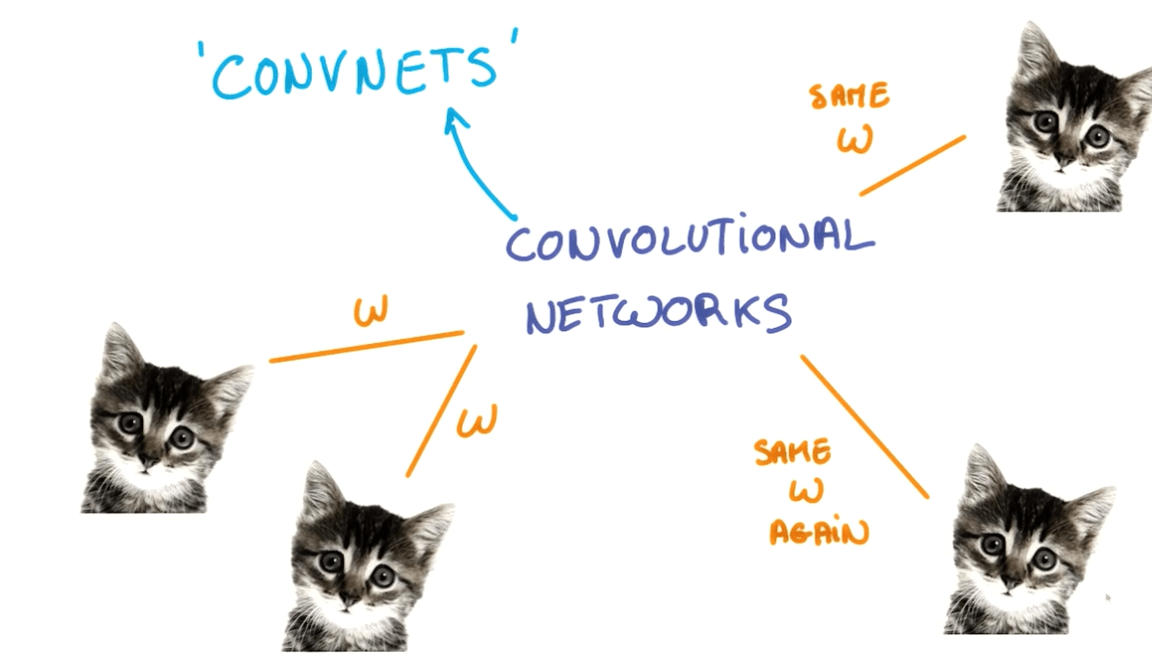 'CONVNETS'
SAME
W
CONVOLUTiONAL
NETWORKS
W
W
SAME
W
AGAiN